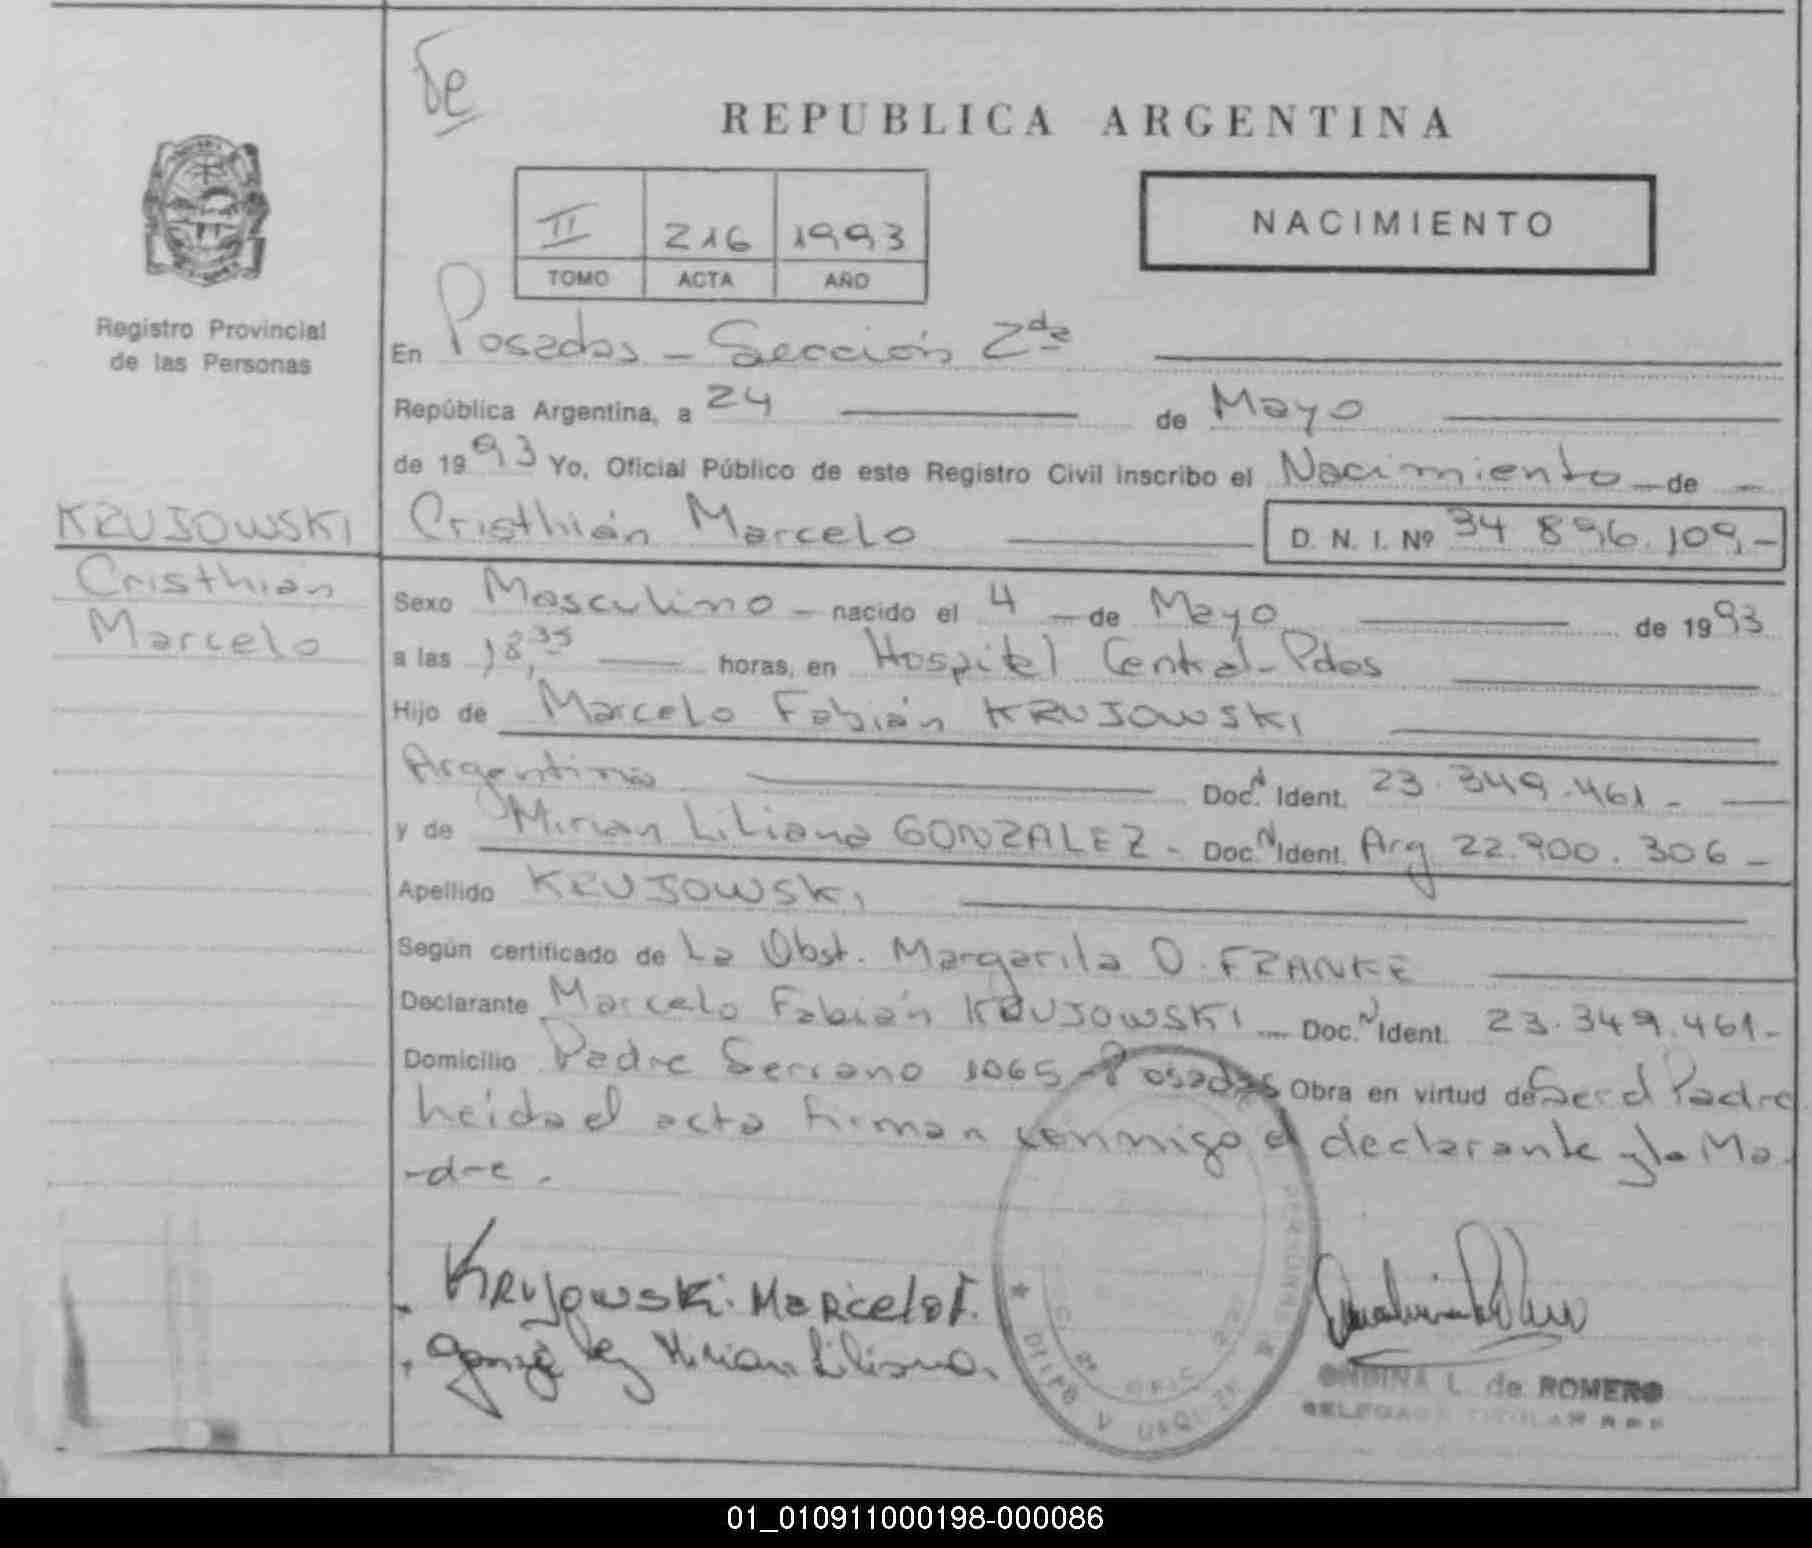 Te
REPUBLICA ARGENTINA
II 216 1993
TOMO ACTA AÑO
NACIMIENTO
Registro Provincial
de las Personas
En Posadas - Sección 2da
República Argentina, a 24 de Mayo
de 1993 Yo, Oficial Público de este Registro Civil inscribo el Nacimiento de -
KRUJOWSKI
Cristhián
Marcelo
Cristhián Marcelo D. N. I. Nº 34 896.109,-
Sexo Masculino - nacido el 4 - de Mayo de 1993
a las 18,35 horas, en Hospital Central - Pdas
Hijo de Marcelo Fabián KRUJOWSKI
Argentino Doc. N Ident. 23.349.461 -
y de Mirian Liliana GONZALEZ - Doc. N Ident. Arg 22.900.306 -
Apellido KRUJOWSKI
Según certificado de La Obst. Margarita O. FRANKE
Declarante Marcelo Fabián KRUJOWSKI Doc. N Ident. 23.349.461-
Domicilio Padre Serrano 1065 - Posadas Obra en virtud de Ser el Padre
Leida el acta firman conmigo el declarante y la Ma-
-dre.
Krujowski Marcelo F.
Gonzalez Mirian Liliana.
ONDINA L. de ROMERO
DELEGADA TITULAR R P P
01_010911000198-000086